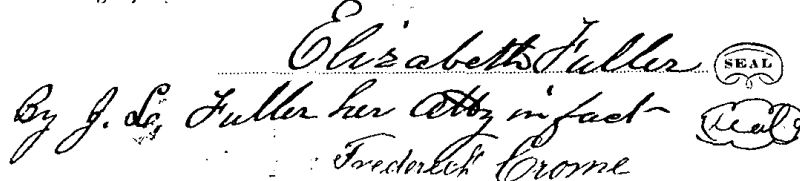 Elizabeth Fuller SEAL
By J. L. Fuller her atty in fact Seal
Frederick Crome